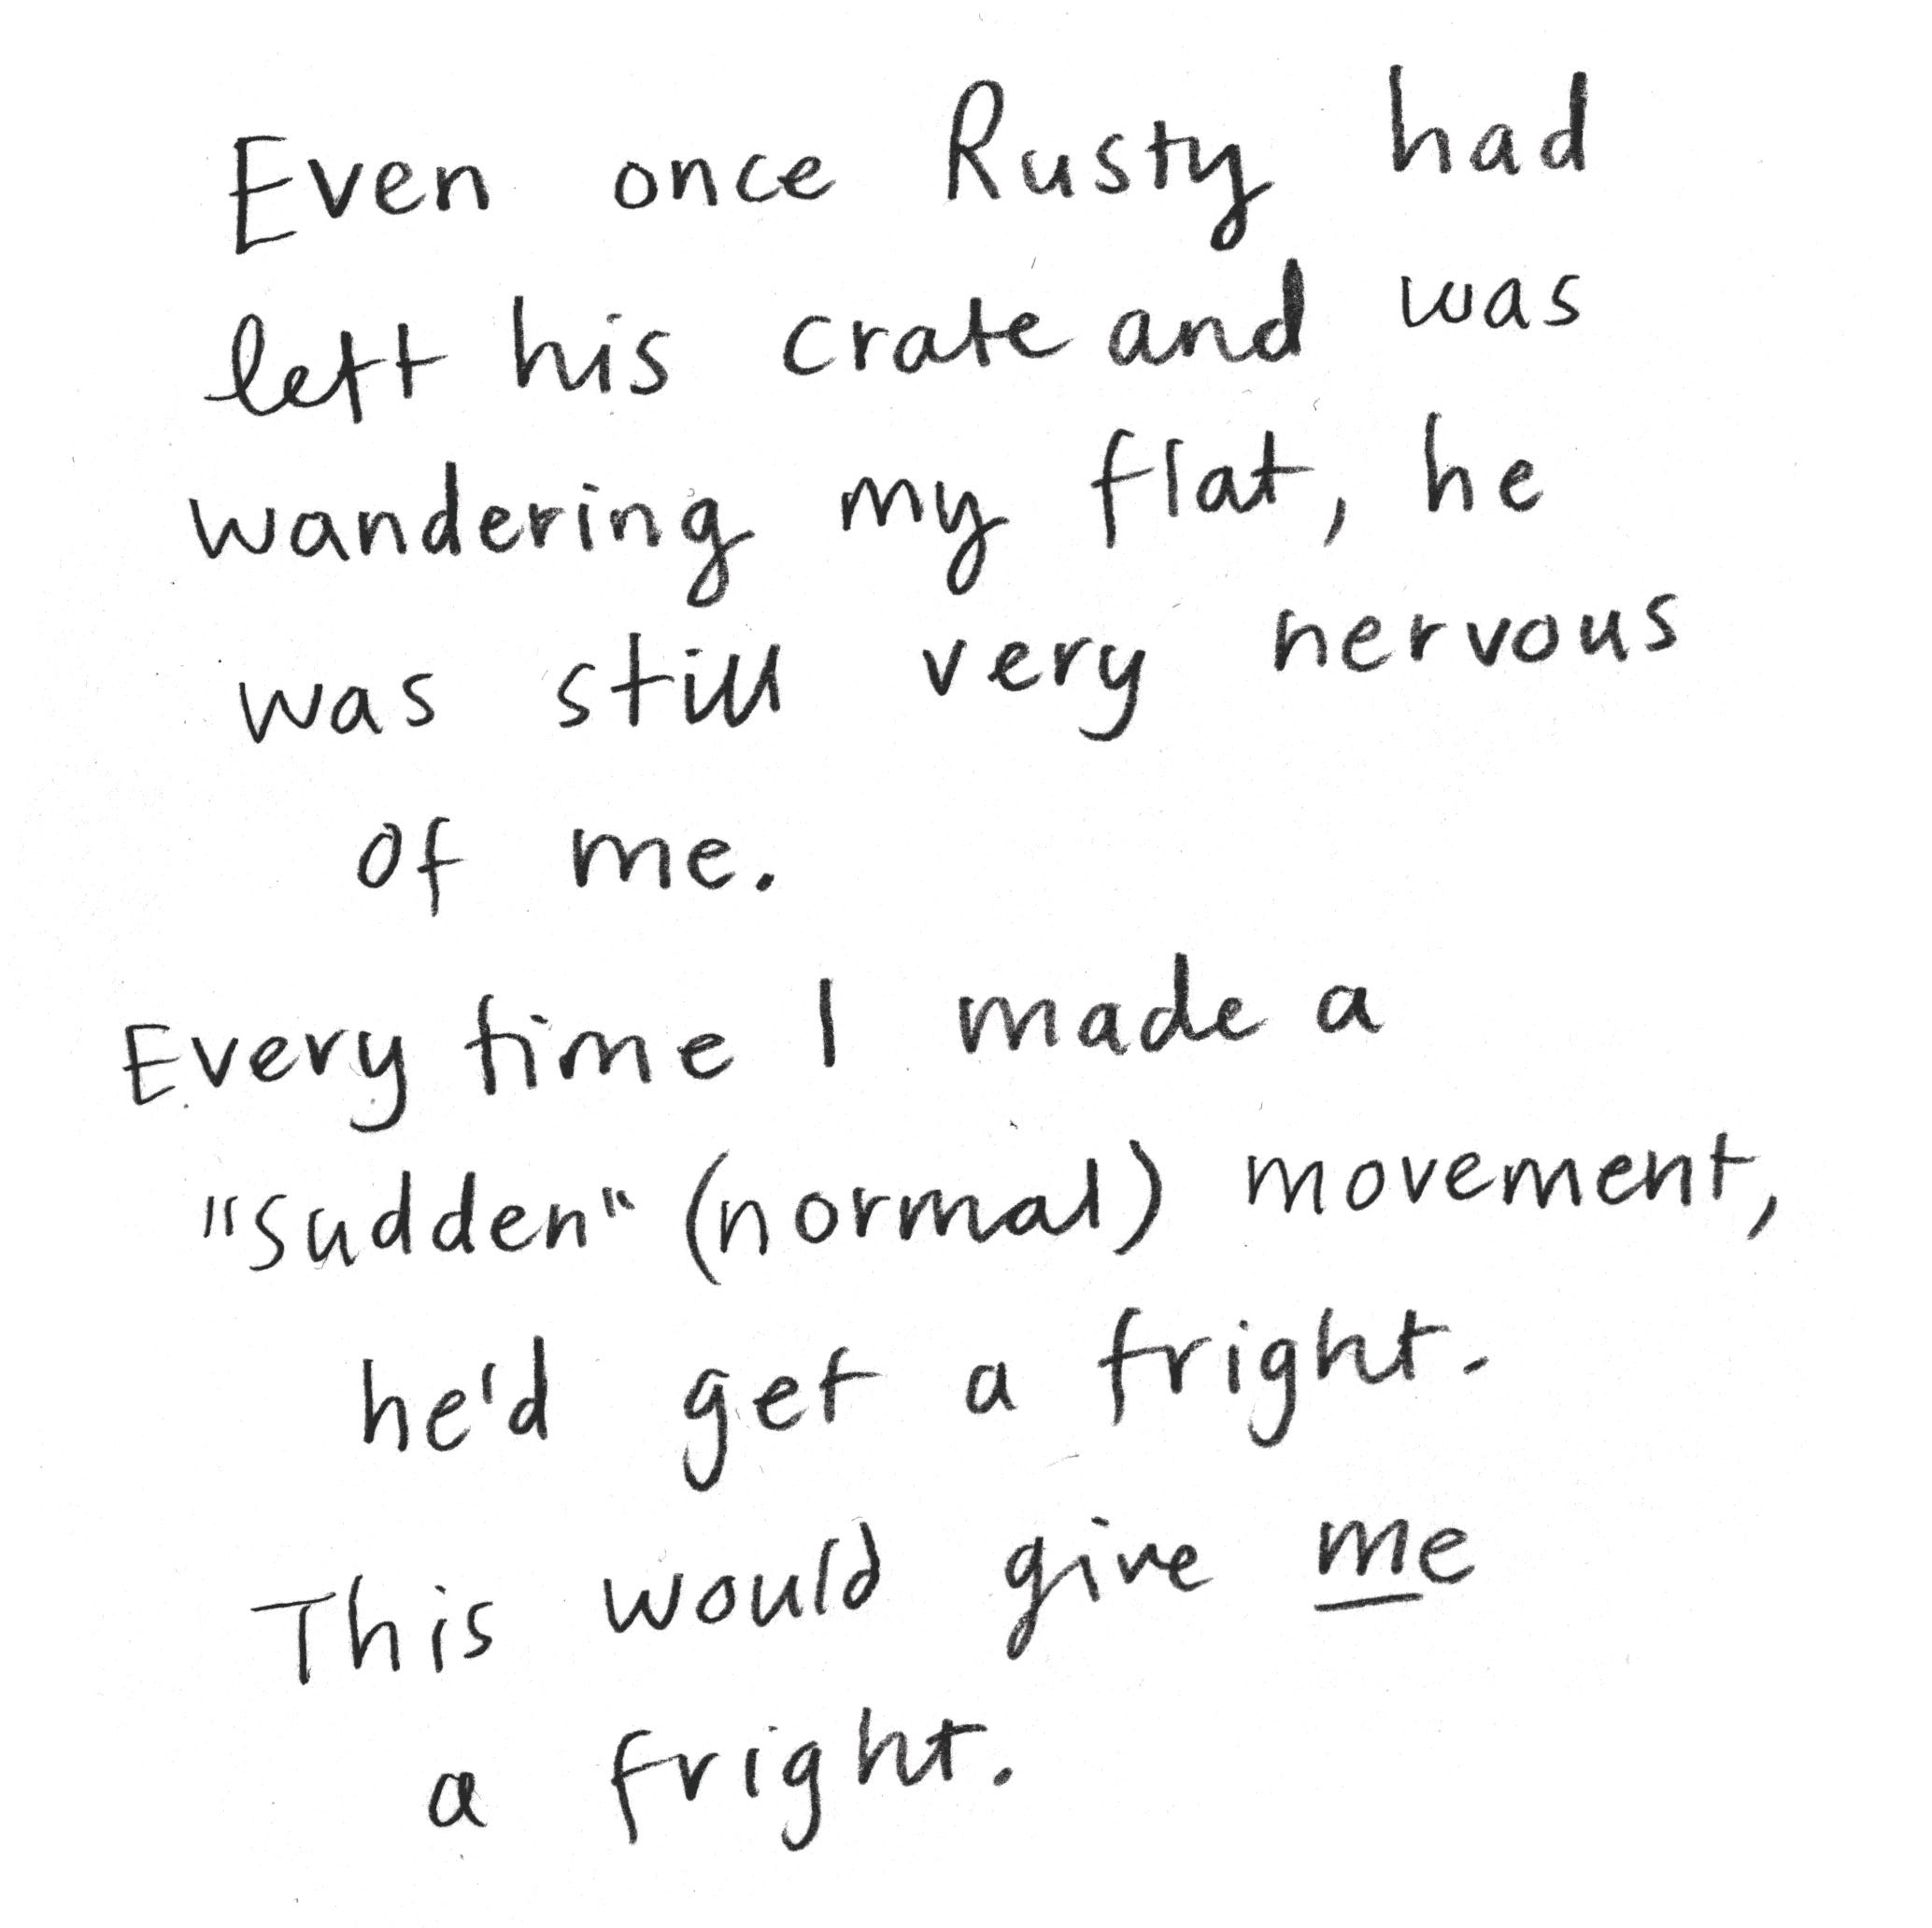 Even once Rusty had
left his crate and was
wandering my flat, he
was still very nervous
of me.
Every time I made a
"sudden" (normal) movement,
he'd get a fright.
This would give me
a fright.